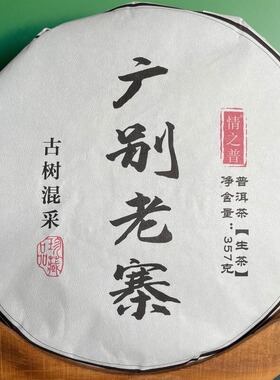 广别老寨
情之普
普洱茶【生茶】
净含量：357克
古树混采
珍藏品